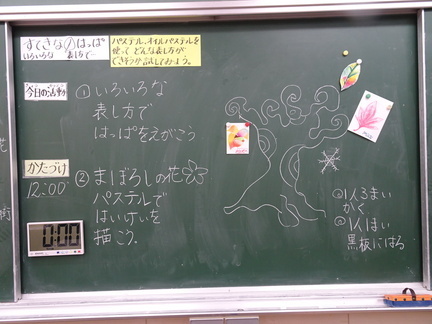 すてきな①はっぱ
いろいろな 表し方で…
パステル、オイルパステルを
使って どんな表し方が
できそうか試してみよう。
今日の活動
①いろいろな
表し方で
はっぱをえがこう
かたづけ
12:00
②まぼろしの花
パステルで
はいけいを
描こう。
0:00
1人3まい
かく
1人1まい
黒板にはる